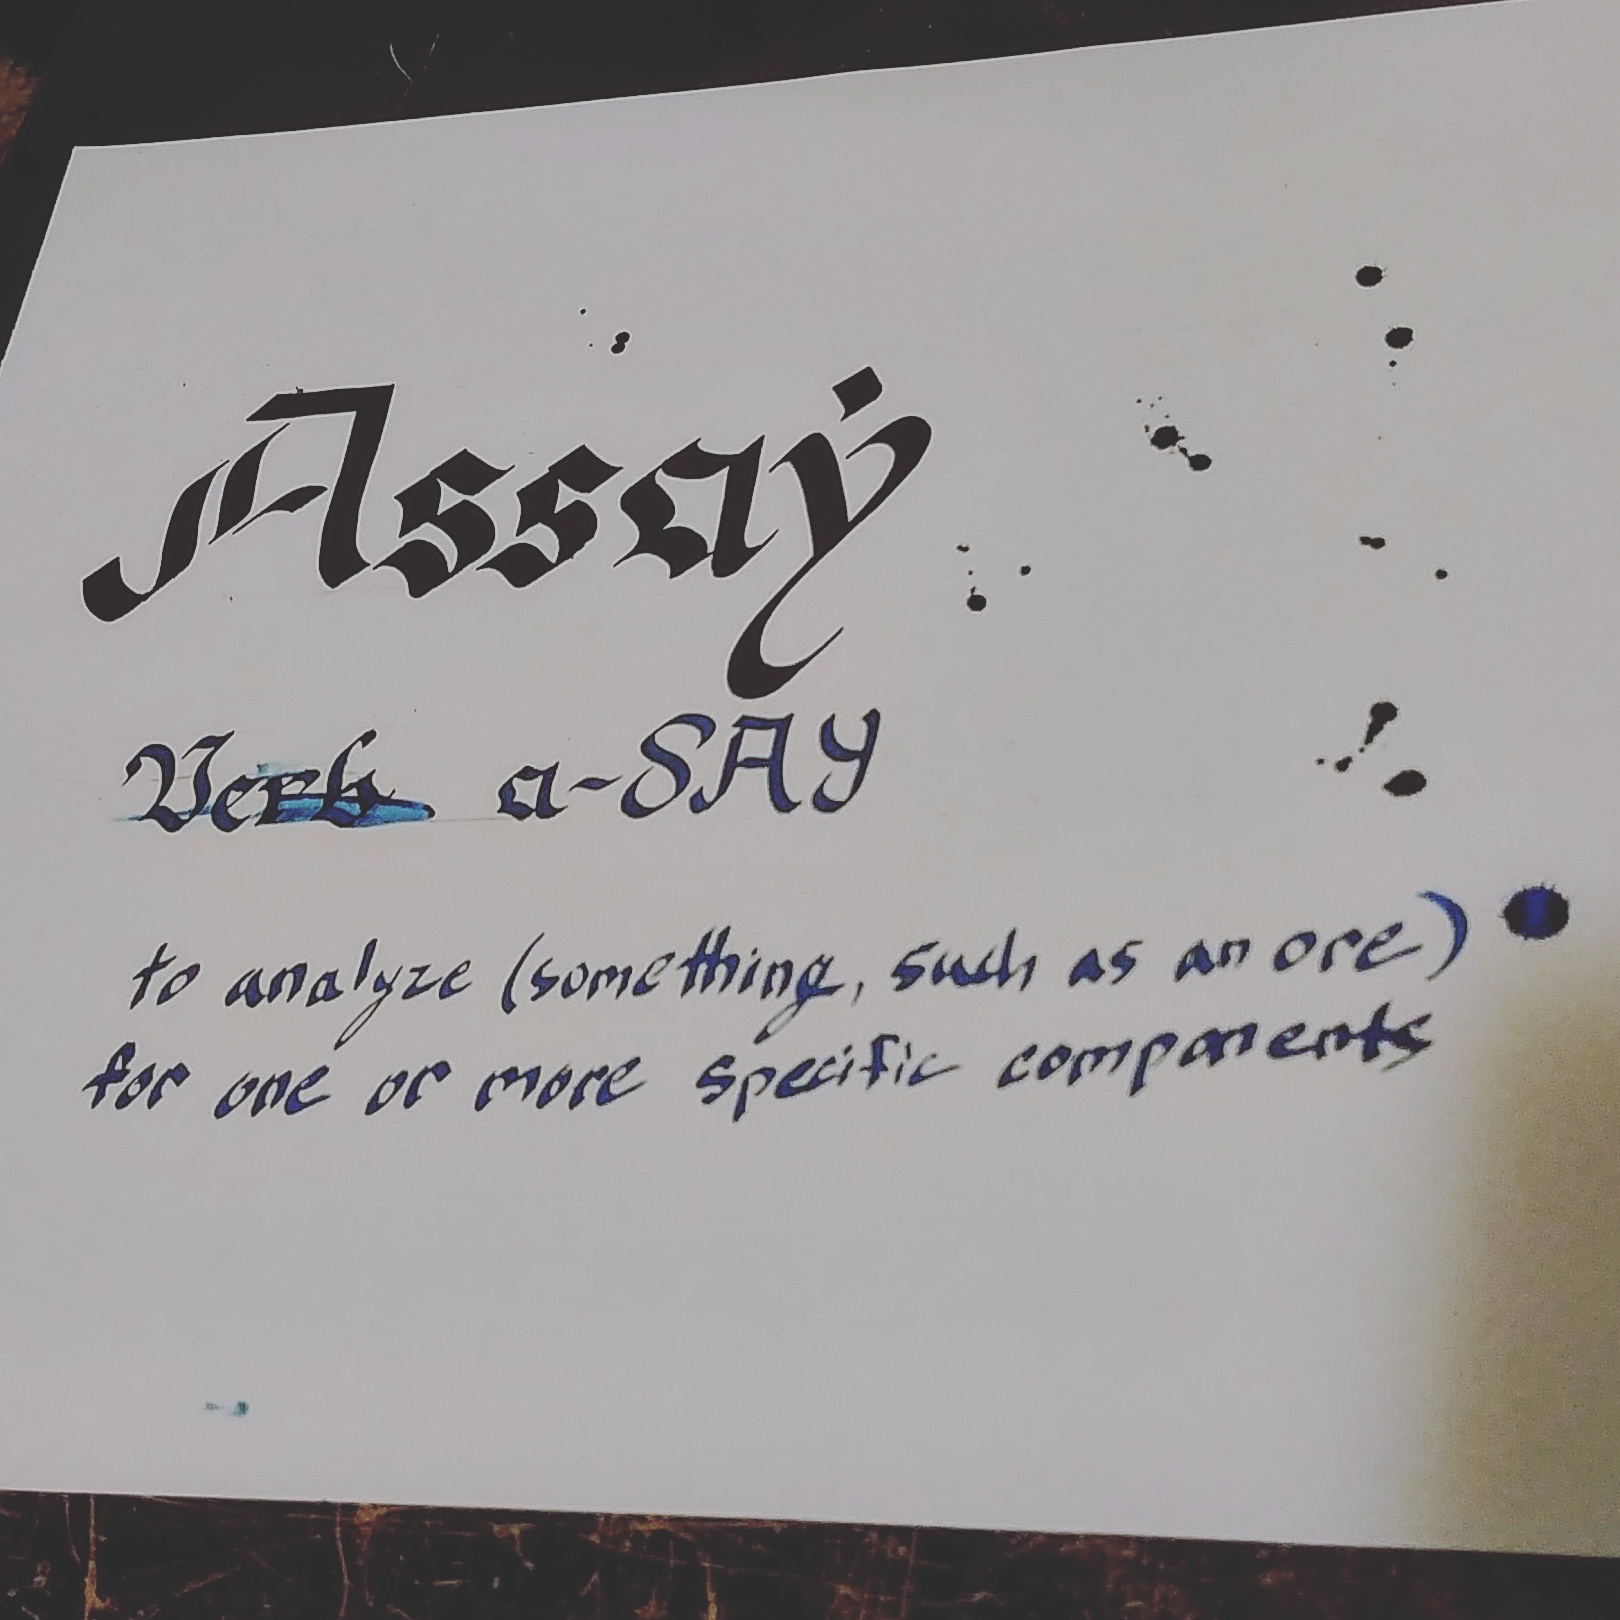 Assay
Verb a-SAY
to analyze (something, such as an ore)
for one or more specific components